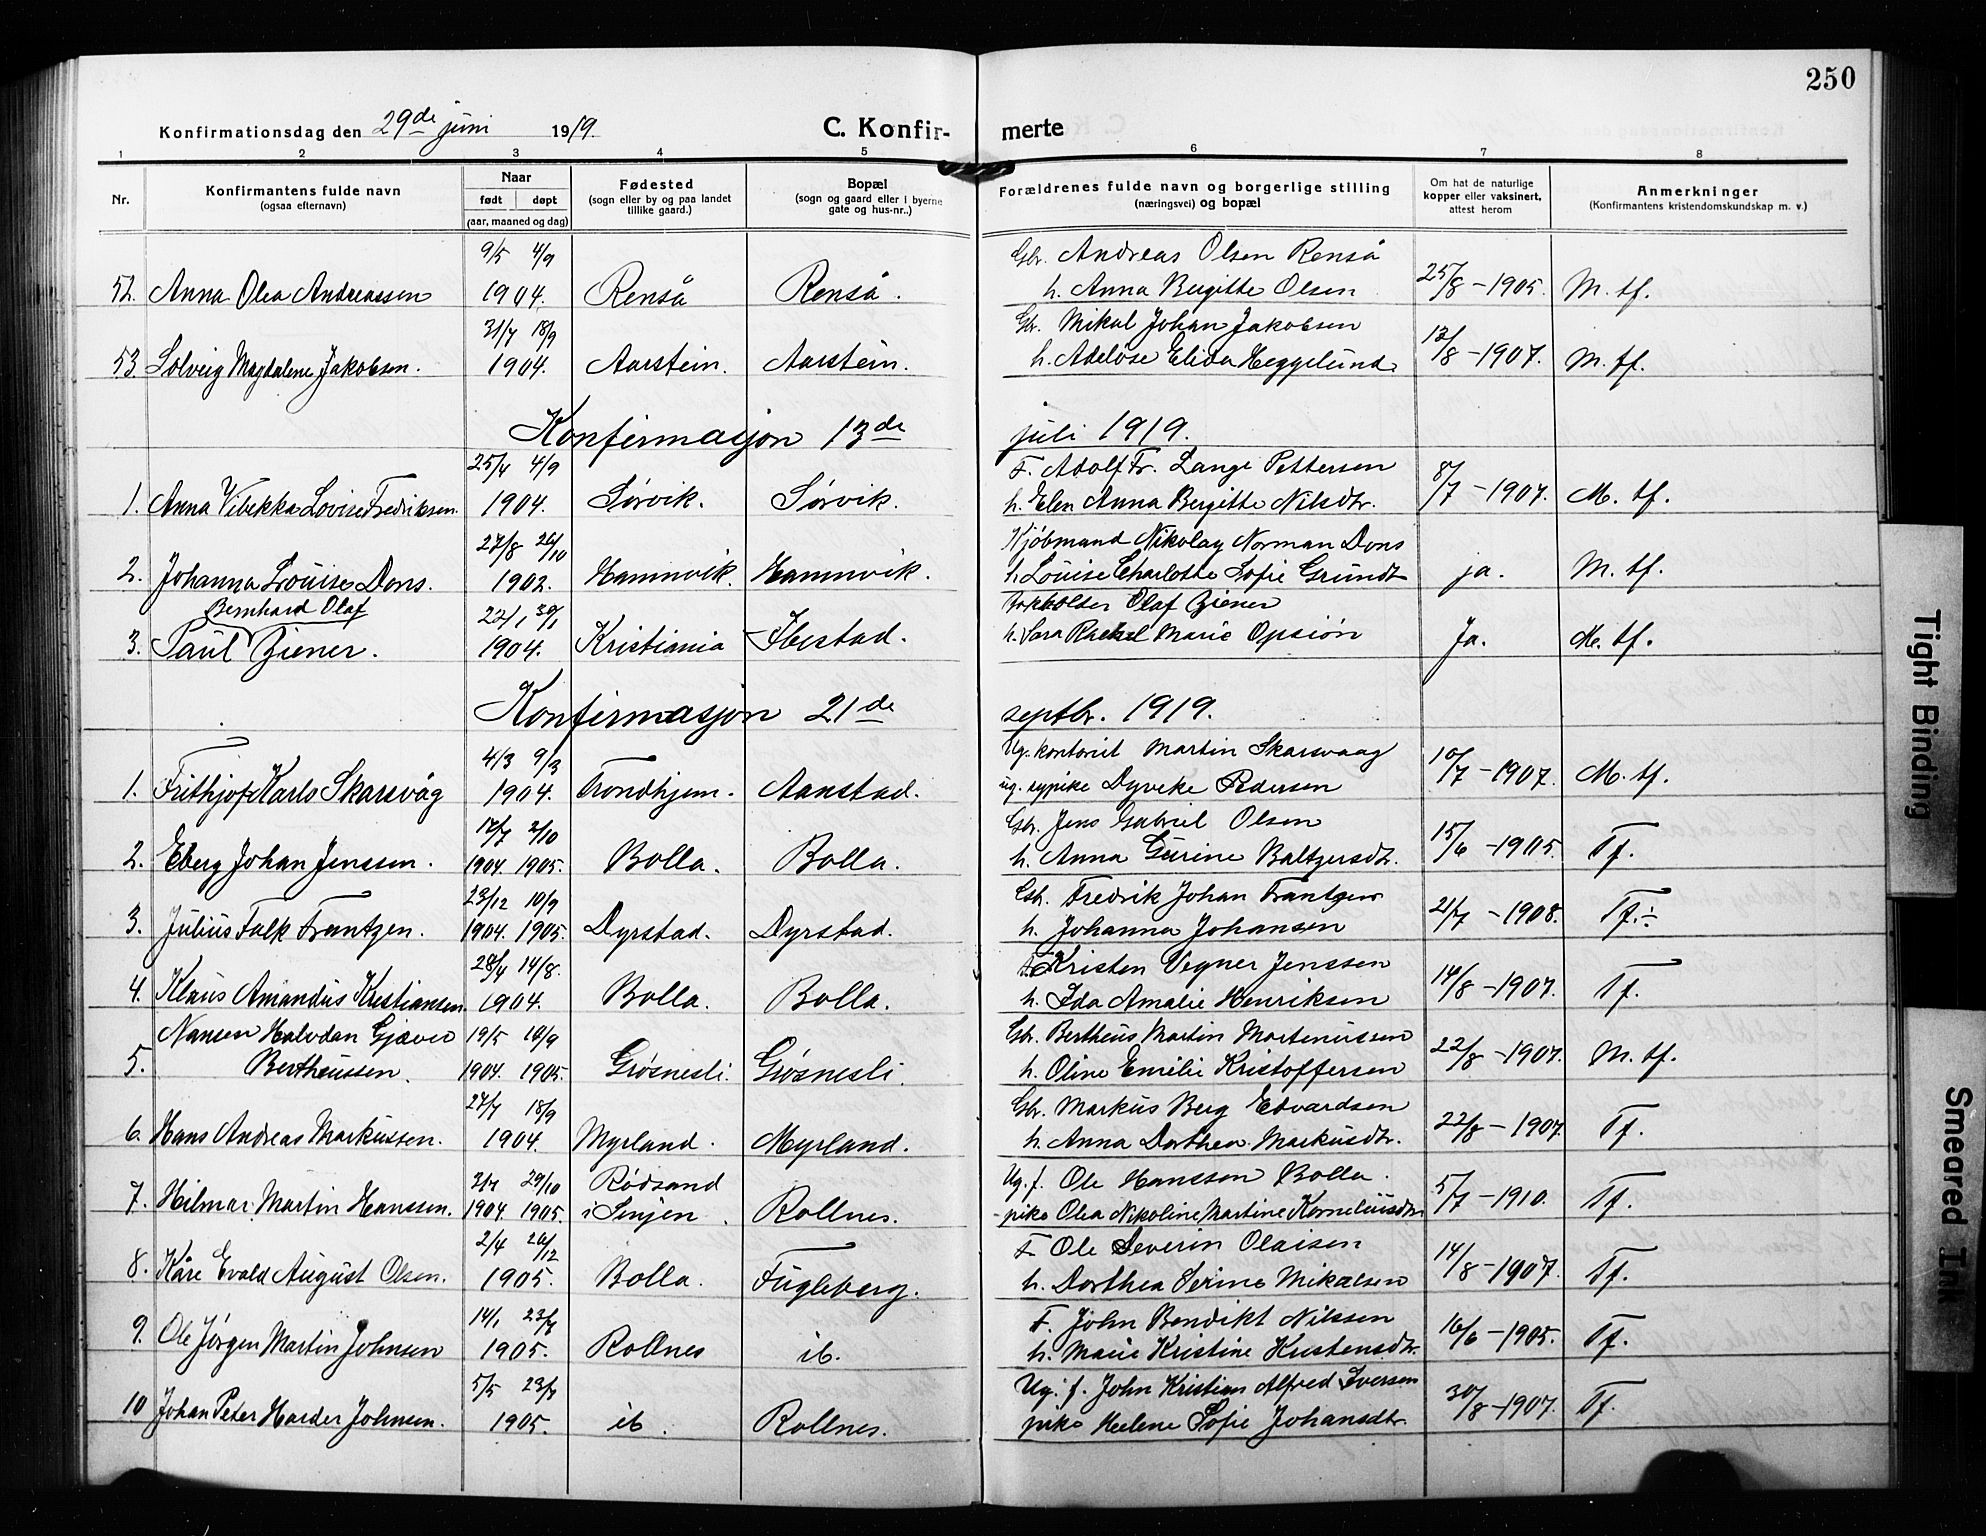 250
Konfirmationsdag den 29de juni 1919. C. Konfir- merte
1 2 3 4 5 6 7 8
Nr. Konfirmantens fulde navn (ogsaa efternavn) Naar født døpt (aar, maaned og dag) Fødested (sogn eller by og paa landet tillike gaard.) Bopæl (sogn og gaard eller i byerne gate og hus-nr..) Forældrenes fulde navn og borgerlige stilling (næringsvei) og bopæl Om hat de naturlige kopper eller vaksinert, attest herom Anmerkninger (Konfirmantens kristendomskundskap m. v.)
9/5 4/9 Gbr. Andreas Olsen Renså
52. Anna Olea Andreassen 1904. Renså Renså. h. Anna Bergitte Olsen 25/8 - 1905. M. tf.
31/7 18/9 Gbr. Mikal Johan Jakobsen
53 Solveig Magdalene Jakobsen. 1904. Aarstein. Aarstein. h. Adelöse Elida Heggelund 13/8 - 1907. M. tf.
Konfirmasjon 13de juli 1919.
25/4 4/9 F. Adolf Fr. Lange Pettersen
1. Anna Vibekka Lovise Fredriksen. 1904. Sørvik. Sørvik. h. Elen Anna Bergitte Nilsdtr. 8/7 - 1907. M. tf.
27/8 26/10 Kjøbmand Nikolay Norman Dons
2. Johanna Louise Dons. 1902. Hamnvik. Hamnvik. h. Louise Charlotte Sofie Grundt ja. M. tf.
Bernhard Olaf 22/1 30/1 Bokholder Olaf Ziener
3. Paul Ziener. 1904. Kristiania Ibestad. h. Sara Rachel Marie Opsiön Ja. M. tf.
Konfirmasjon 21de septbr. 1919.
4/3 9/3 Ug. kontorist Martin Skarsvaag
1. Frithjof Karlo Skarsvåg 1904. Trondhjem. Aanstad. ug. sypike Dyveke Pedersen 10/7 - 1907. M. tf.
17/7 2/10 Gbr. Jens Gabriel Olsen
2. Eberg Johan Jenssen. 1904 1905. Bolla. Bolla. h. Anna Gurine Baltzersdtr. 15/6 - 1905. Tf.
23/12 10/9 Gbr. Fredrik Johan Frantzen
3. Julius Falk Frantzen. 1904. 1905. Dyrstad. Dyrstad. h. Johanna Johansen 21/7 - 1908. Tf. ÷
28/4 14/8. Kristen Vegner Jenssen
4. Klaus Amandus Kristiansen. 1904. Bolla. Bolla. h. Ida Amalie Henriksen 14/8 - 1907. Tf.
Nansen Halvdan Gjæver 19/5 10/9 Gbr. Bertheus Martin Martenussen
5. Bertheussen. 1904. 1905. Grøsnesli. Grøsnesli. h. Oline Emilie Kristoffersen 22/8 - 1907. M. tf.
27/7 18/9 Gbr. Markus Berg Edvardsen
6. Hans Andreas Markussen. 1904. Myrland. Myrland. h. Anna Dorthea Markusdtr. 22/8 - 1907. Tf.
29/10 Rödsand Ug. f. Ole Hanssen Bolla.
7. Hilmar Martin Hanssen. 1904 1905. i Senjen. Rollnes. pike Olea Nikoline Martine Korneliusdtr. 5/7 - 1910. Tf.
2/4 26/12 F. Ole Severin Olaisen
8. Kåre Evald August Olsen. 1905. Bolla. Fugleberg. h. Dorthea Serine Mikalsen 14/8 - 1907. Tf.
14/1 F. John Bendikt Nilssen
9. Ole Jørgen Martin Johnsen 1905. Rollnes ib. h. Marie Kristine Kristensdtr. 16/6 - 1905. Tf.
5/5 Ug. f. John Kristian Alfred Iversen
10 Johan Peter Harder Johnsen. 1905. ib. Rollnes. pike Helene Sofie Johansdtr. 30/8 - 1907. Tf.
Tight Binding
Smeared Ink